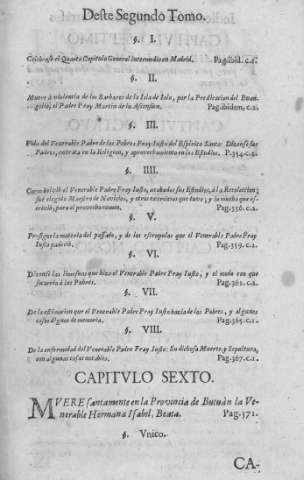 Deste Segundo Tomo.
§. I.
Celebrase el Quarto Capitulo General Intermedio en Madrid. Pag.ibid. c.2.
§. II.
Muere à violencia de los Barbaros de la Isla de Iolo, por la Predicacion del Euan-
gelio, el Padre Fray Martin de la Ascension. Pag.ibidem, c.2.
§. III.
Vida del Venerable Padre de los Pobres Fray Iusto del Espiritu Santo: Dizense sus
Padres, entrada en la Religion, y aprovechamiento en los Estudios. P.354.c.2.
§. IIII.
Como bolviò el Venerable Padre Fray Iusto, acabados sus Estudios, à la Recoleccion;
fue elegido Maestro de Novicios, y otros exercicios que tuvo; y lo mucho que es-
cribiò, para el provecho comun. Pag.356. c.2.
§. V.
Prosigue la materia del passado, y de los escrupulos que el Venerable Padre Fray
Iusto padeciò. Pag.359. c.1.
§. VI.
Dizense las limosnas que hizo el Venerable Padre Fray Iusto, y el modo con que
socorria à los Pobres. Pag.362. c.1.
§. VII.
De la estimacion que el Venerable Padre Fray Iusto hazia de los Pobres, y algunas
cosas dignas de memoria. Pag.365.c.1.
§. VIII.
De la enfermedad del Venerable Padre Fray Iusto: Su dichosa Muerte, y Sepultura,
con algunas cosas notables. Pag.367.c.1.
CAPITVLO SEXTO.
MVERE santamente en la Provincia de Butuàn la Ve-
nerable Hermana Isabel, Beata. Pag.371.
§. Vnico.
CA-